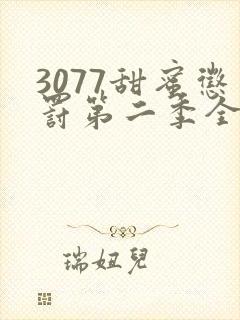 3077甜蜜懲
罰第二季全
瑞妞兒